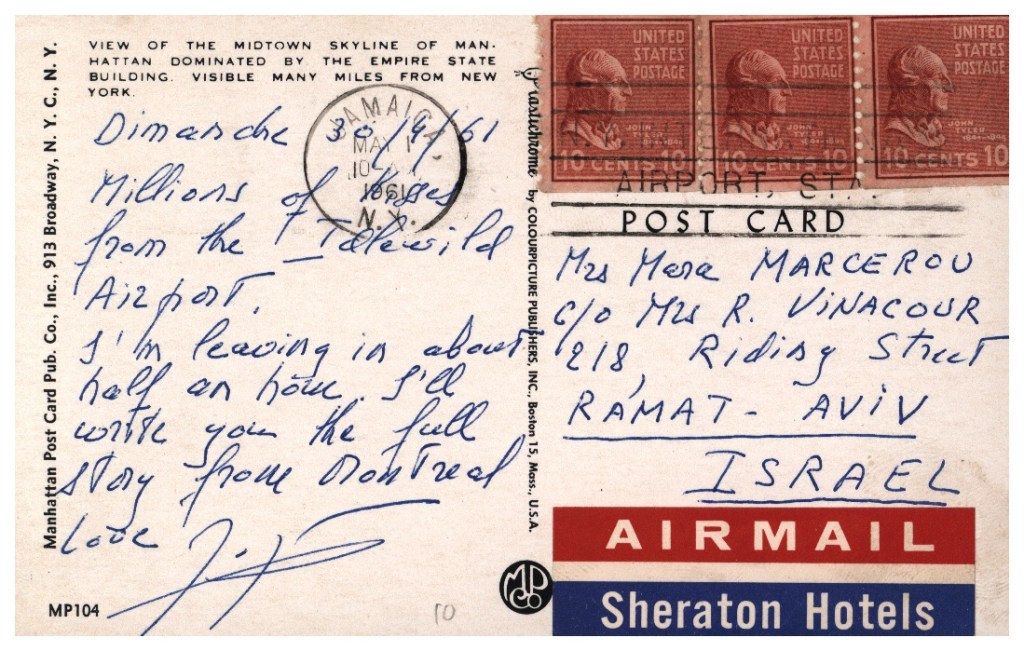 VIEW OF THE MIDTOWN SKYLINE OF MAN-
HATTAN DOMINATED BY THE EMPIRE STATE
BUILDING. VISIBLE MANY MILES FROM NEW
YORK.
Manhattan Post Card Pub. Co., Inc., 913 Broadway, N. Y. C., N. Y.
Dimanche 30/4/61
Millions of kisses
from the Idlewild
Airport.
I'm leaving in about
half an hour. I'll
write you the full
story from Montreal
Love
MP104
10
JAMAICA
MAY 1
10
1961
N.Y.
Plastichrome by COLOURPICTURE PUBLISHERS, INC., Boston 15, Mass., U.S.A.
MPCo
UNITED
STATES
POSTAGE
JOHN
TYLER
1841-1845
10 CENTS 10
UNITED
STATES
POSTAGE
JOHN
TYLER
1841-1845
10 CENTS 10
UNITED
STATES
POSTAGE
JOHN
TYLER
1841-1845
10 CENTS 10
AIRPORT, STA.
POST CARD
Mrs Mara MARCEROU
c/o Mrs R. VINACOUR
218, Riding Street
RAMAT-AVIV
ISRAEL
AIRMAIL
Sheraton Hotels